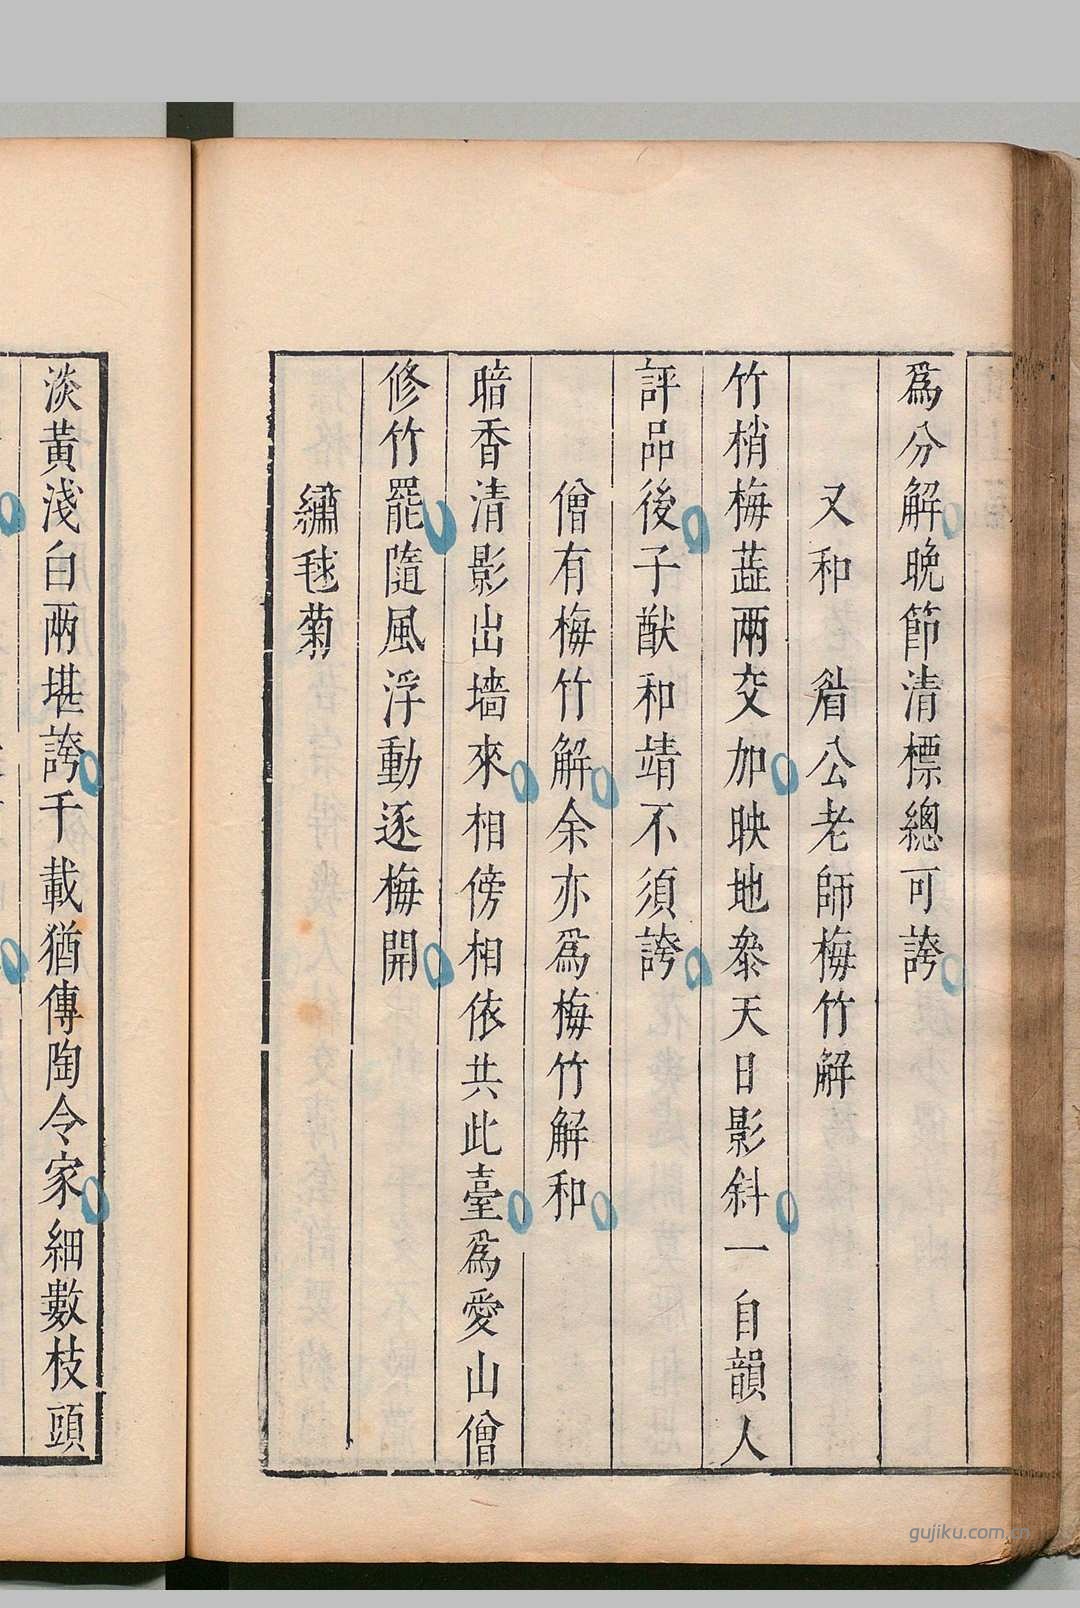 爲分解晚節清標總可誇
又和　㫺公老師梅竹解
竹梢梅蘂兩交加映地叅天日影斜一自韻人
評品後子猷和靖不須誇
僧有梅竹解余亦爲梅竹解和
暗香清影出墻來相傍相依共此臺爲愛山僧
修竹罷隨風浮動逐梅開
繡毬菊
淡黃淺白兩堪誇千載猶傳陶令家細數枝頭
gujiku.com.cn